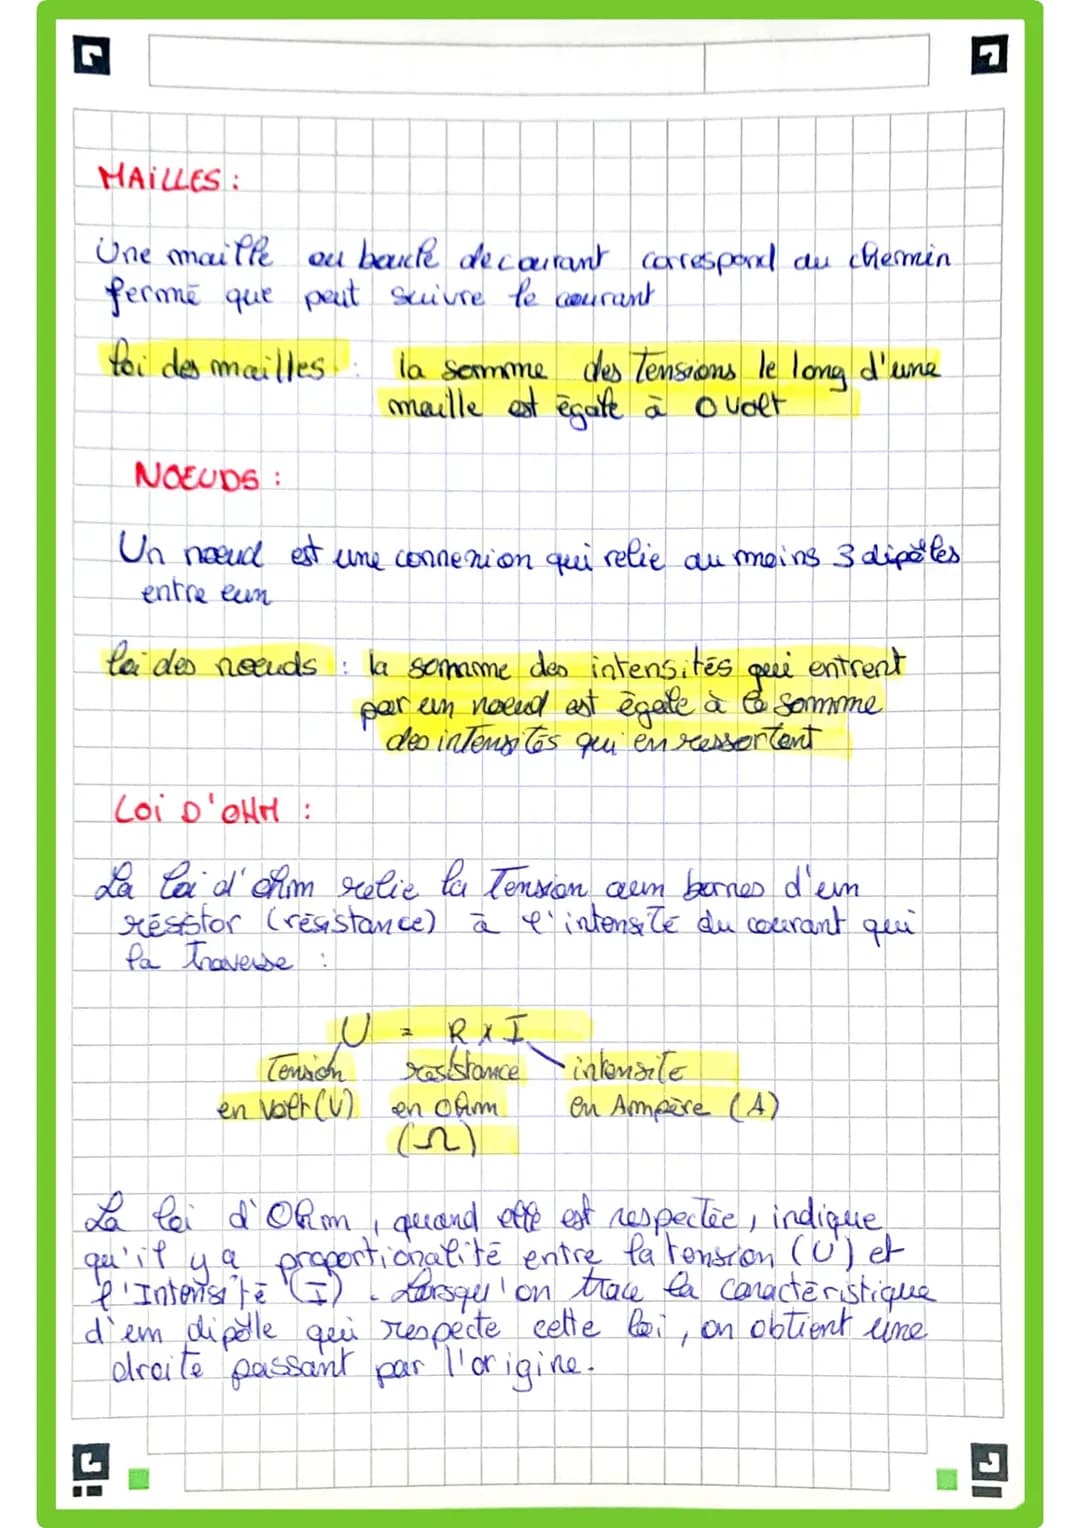 MAILLES :
Une maille ou boucle de courant correspond au chemin
fermé que peut suivre le courant
loi des mailles : la somme des tensions le long d'une
maille est égale à 0 volt
NOEUDS :
Un noeud est une connexion qui relie au moins 3 dipôles
entre eux
loi des noeuds : la somme des intensités qui entrent
par un noeud est égale à la somme
des intensités qui en ressortent
LOI D'OHM :
La loi d'ohm relie la tension aux bornes d'un
résistor (résistance) à l'intensité du courant qui
la traverse :
U = R x I
Tension résistance intensité
en Volt (V) en Ohm en Ampère (A)
(Ω)
La loi d'Ohm, quand elle est respectée, indique
qu'il y a proportionalité entre la tension (U) et
l'Intensité (I). Lorsqu'on trace la caractéristique
d'un dipôle qui respecte cette loi, on obtient une
droite passant par l'origine.